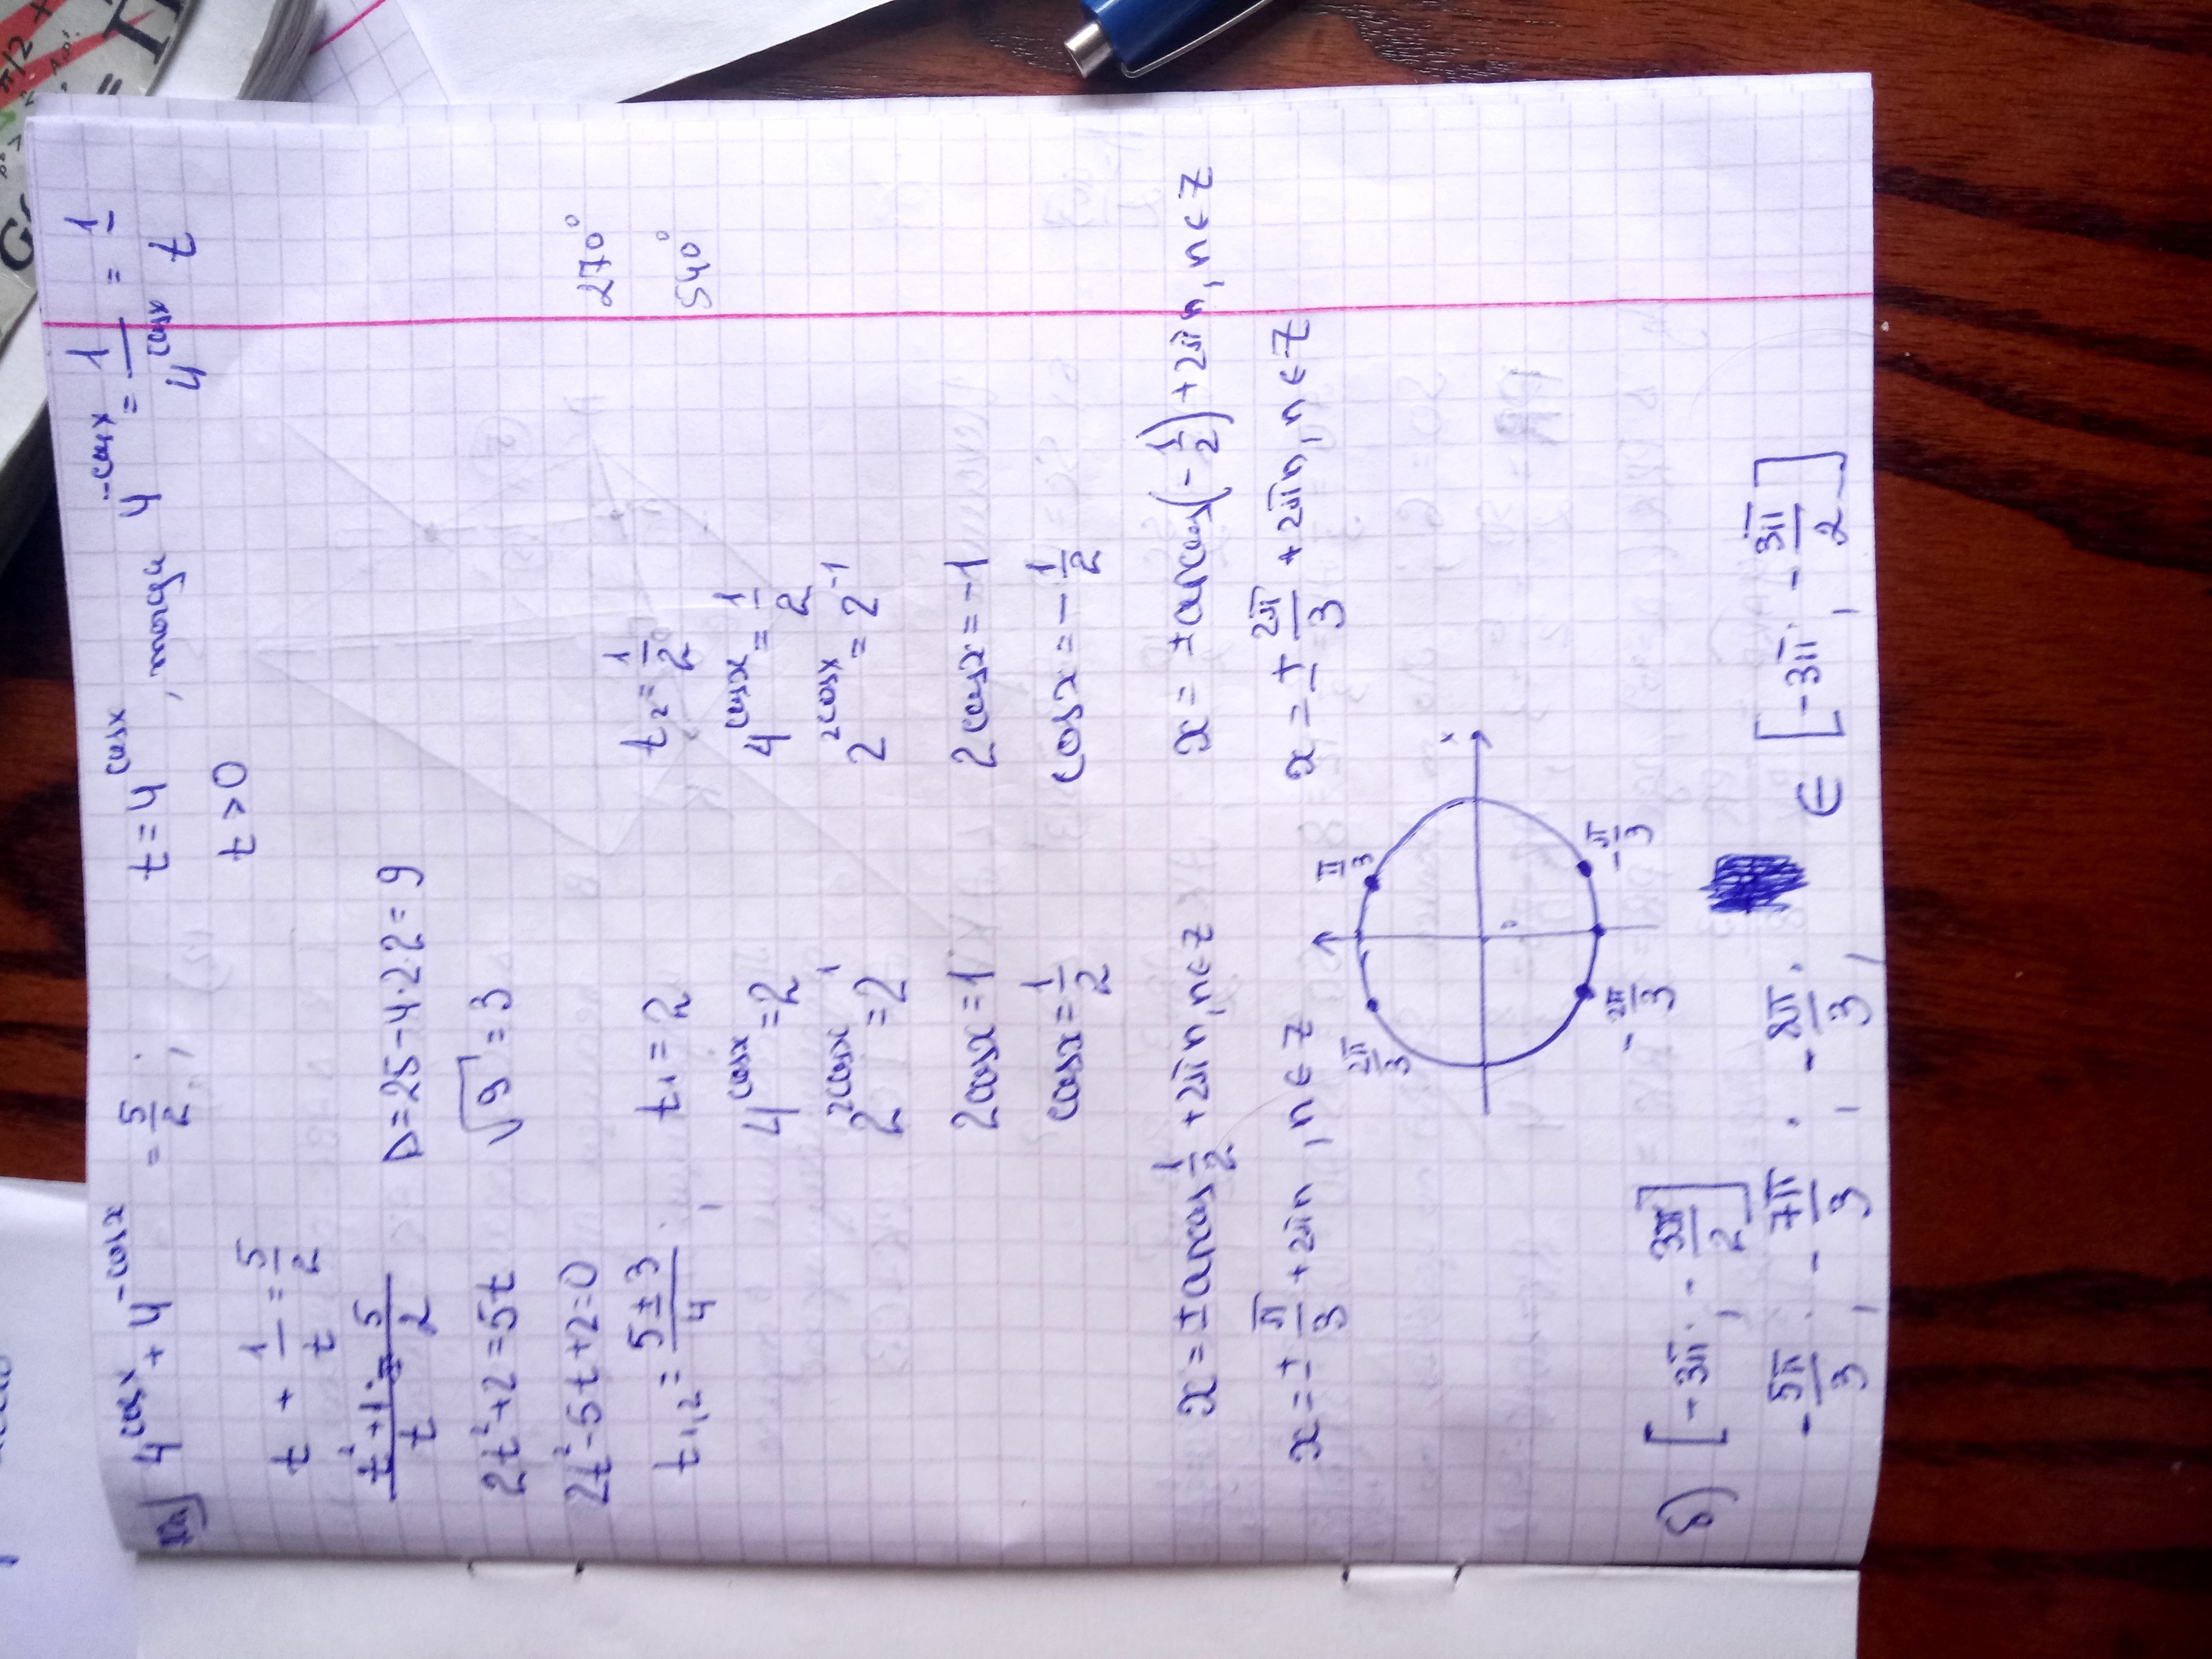 4^{cosx} + 4^{-cosx} = 5/2 ; t = 4^{cosx}, тогда 4^{-cosx} = 1/4^{cosx} = 1/t
t > 0
t + 1/t = 5/2
t²+1/t = 5/2 D = 25 - 4·2·2 = 9
2t² + 2 = 5t √9 = 3
2t² - 5t + 2 = 0
270°
t₁,₂ = 5 ± 3/4 ; t₁ = 2 t₂ = 1/2
540°
4^{cosx} = 2 4^{cosx} = 1/2
2^{2cosx} = 2^1 2^{2cosx} = 2^{-1}
2cosx = 1 2cosx = -1
cosx = 1/2 cosx = -1/2
x = ± arccos 1/2 + 2πn, n ∈ Z x = ± arccos(-1/2) + 2πn, n ∈ Z
x = ± π/3 + 2πn, n ∈ Z x = ± 2π/3 + 2πn, n ∈ Z
2π/3 π/3
x
0
-2π/3 -π/3
б) [-3π; -3π/2]
-5π/3 ; -7π/3 ; -8π/3 ; ∈ [-3π; -3π/2]